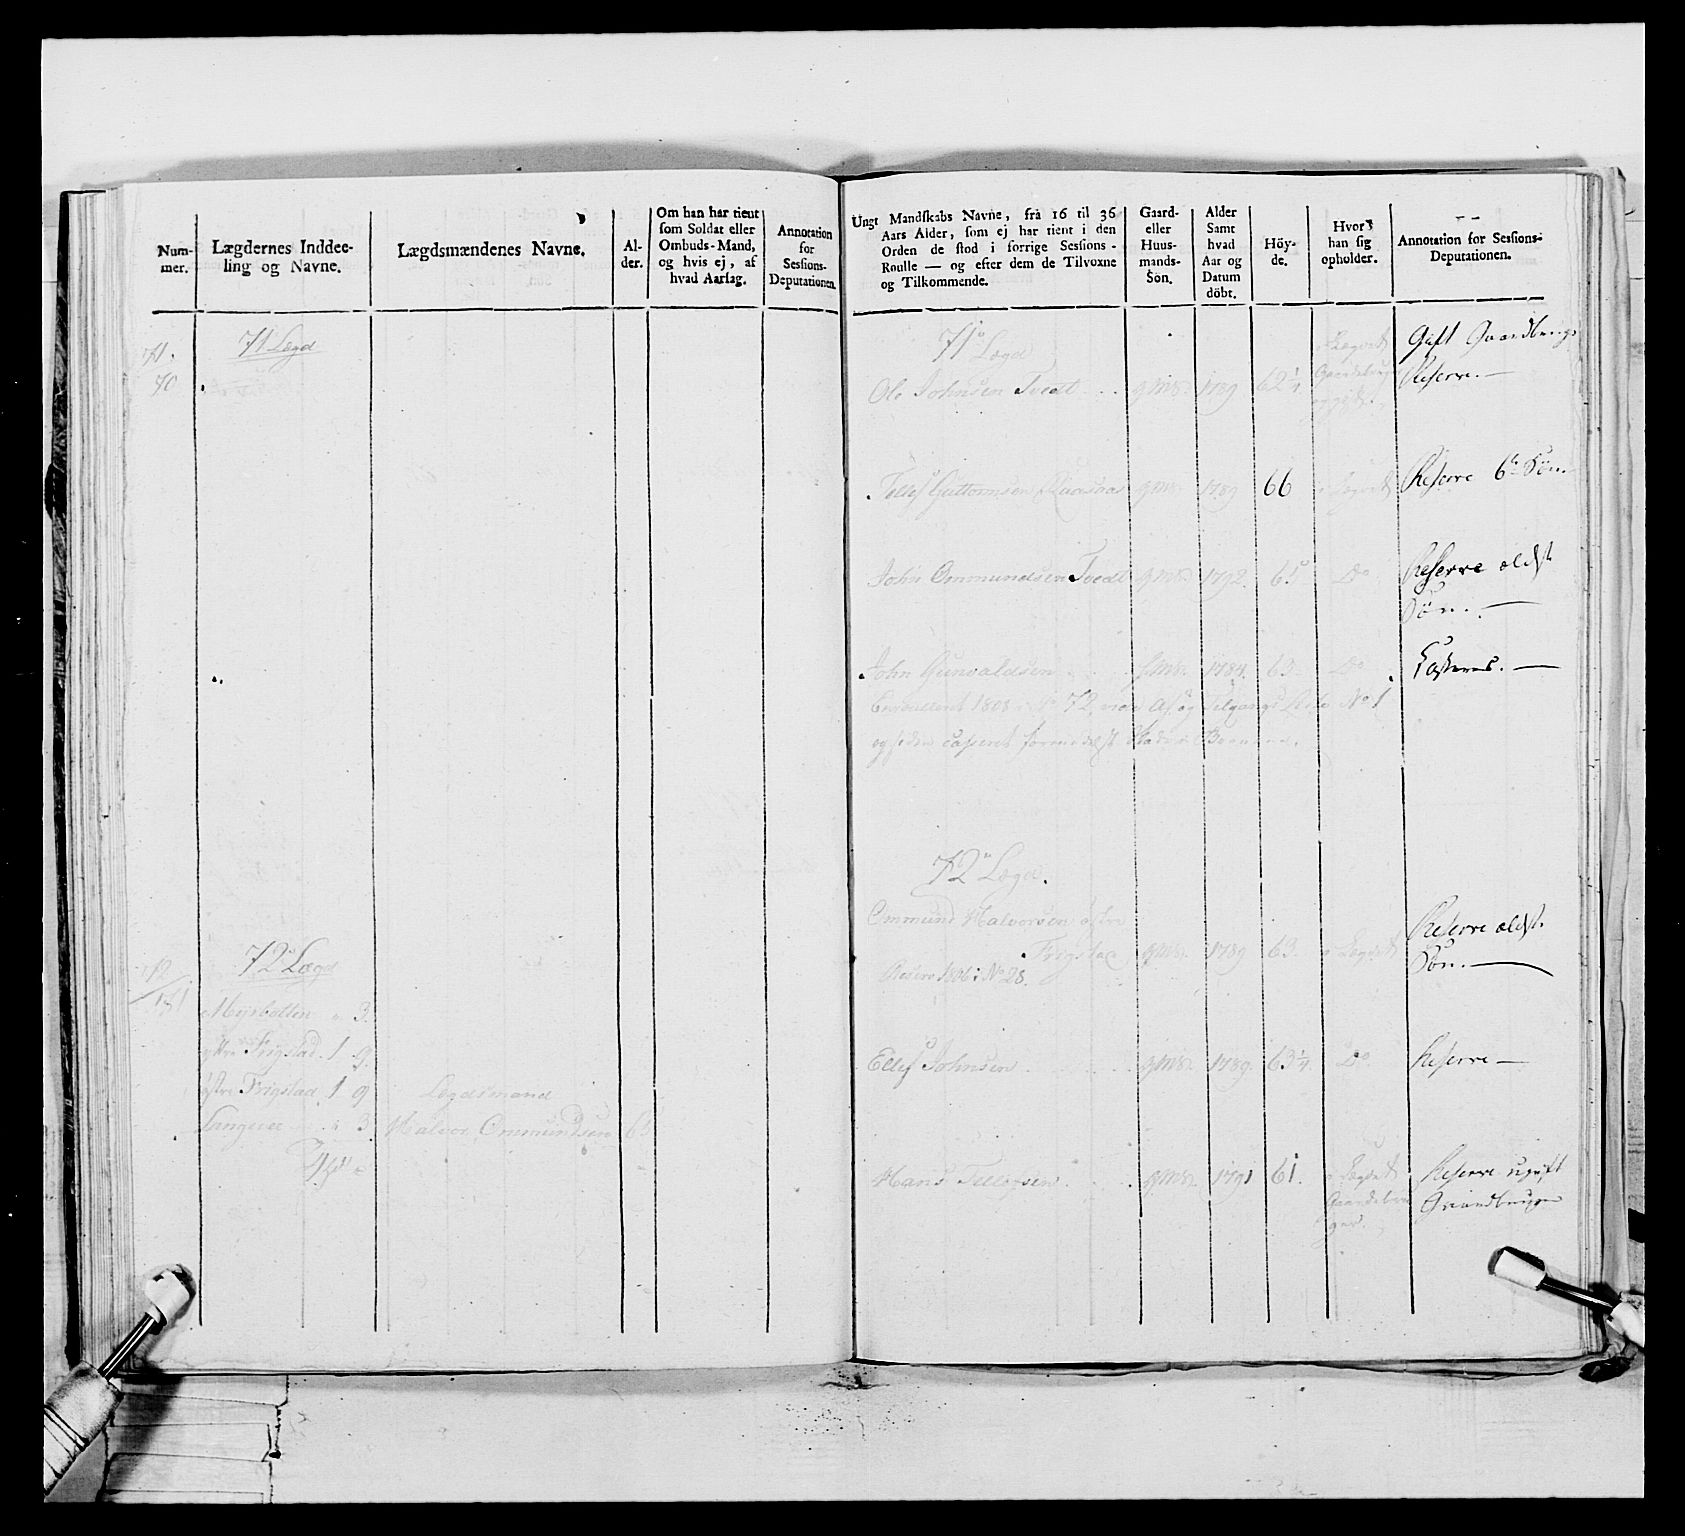 Num-
mer.
Lægdernes Inddee-
ling og Navne.
Lægdsmændenes Navne.
Al-
der.
Om han har tient
som Soldat eller
Ombuds-Mand,
og hvis ej, af
hvad Aarsag.
Annotation
for
Sessions-
Deputationen.
71.
70
71 Lægd
72 Lægd
Myrbotten " 3.
Frigstad. 1 9.
østre Frigstad 1 9
Langevei 3
Lægdsmand
Halvor Ommundsen 65
Ungt Mandskabs Navne, fra 16 til 36
Aars Alder, som ej har tient i den
Orden de stod i forrige Sessions-
Roulle — og efter dem de Tilvoxne
og Tilkommende.
Gaard-
eller
Huus-
mands-
Søn.
Alder
Samt
hvad
Aar og
Datum
döbt.
Höy-
de.
Hvor
han sig
opholder.
Annotation for Sessions-
Deputationen.
71 Lægd
Ole Johnsen Tvedt gms. 1789 62 1/4 i Lægdet Gift Gaardbruger
Reserve.
Tellef Guttormsen gms. 1789 66 i Lægdet Reserve 6te Søn
John Ommundsen Tvedt gms. 1792. 65 Do Reserve eldste
Søn.
John Gunvaldsen gms. 1784. 63 Do Casseres.
1808 No 72 vide Af og Tilgangs Liste No 1
og siden caseret formedelst
72 Lægd.
Ommund Halvorsen østre
Frigstad gms. 1789 63. i Lægdet Reserve eldste
Søn.
Reserve 1806 i No 28.
Ellef Johnsen gms. 1789. 63 1/4 Do Reserve
Hans Tellefsen gms. 1791 61. i Lægdet Reserve ugift
Gaardbruger